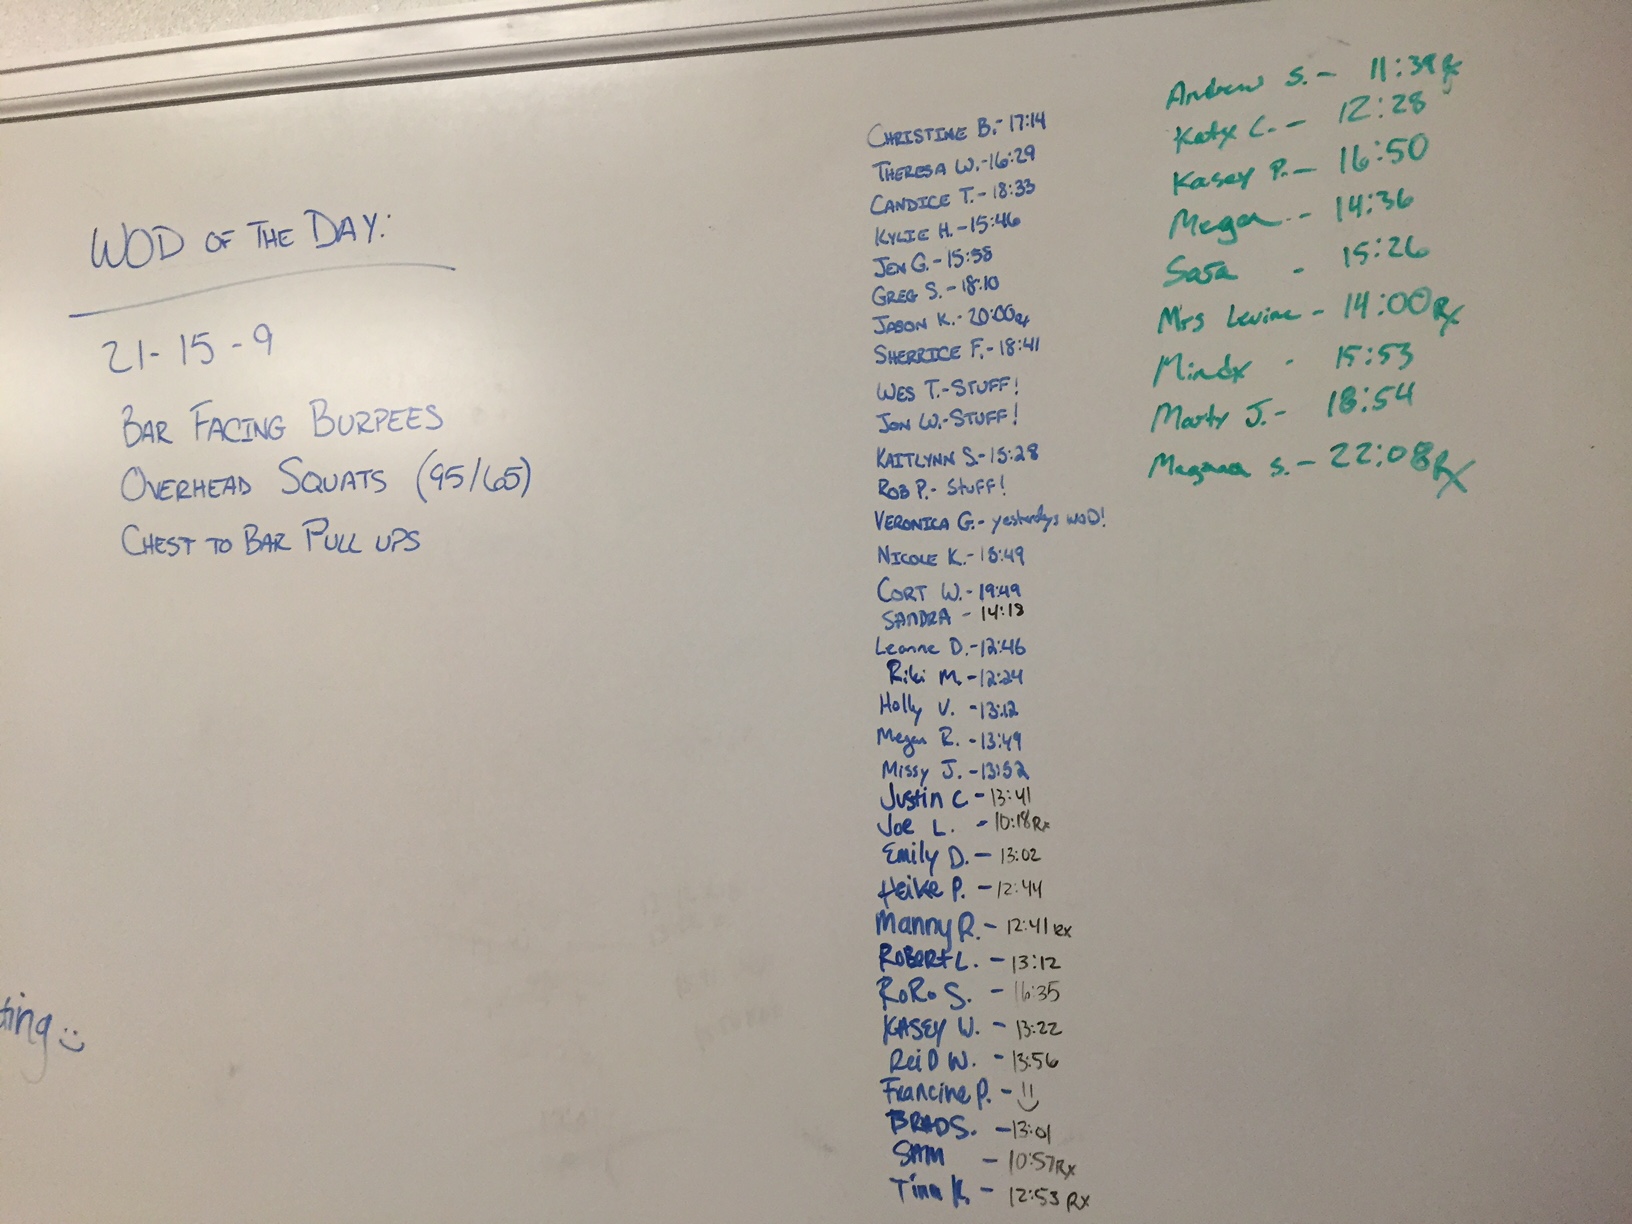 WOD OF THE DAY:
21-15-9
BAR FACING BURPEES
OVERHEAD SQUATS (95/65)
CHEST TO BAR PULL UPS
ting :)
CHRISTINE B.- 17:14
THERESA W.-16:29
CANDICE T.- 18:33
KYLIE H.-15:46
JEN G.-15:58
GREG S.- 18:10
JASON K.- 20:00Rx
SHERRICE F.- 18:41
WES T.-STUFF!
JON W.-STUFF!
KAITLYNN S.-15:28
ROB P.- STUFF!
VERONICA G.- yesterdays WOD!
NICOLE K.-
CORT W.- 19:49
SANDRA - 14:18
Leanne D.-12:46
Riki M. -12:24
Holly V. -13:12
Megan R. -13:49
Missy J. -13:52
Justin C - 13:41
JOE L. - 10:18Rx
Emily D. - 13:02
Heike P. - 12:44
Manny R. - 12:41 Rx
ROBERT L. - 13:12
RoRo S. - 16:35
KASEY W. - 13:22
ReiD W. - 13:56
Francine P. - :)
BRAD S. - 13:01
SAM - 10:57Rx
Tina K. - 12:53 Rx
Andrew S. - 11:39Rx
Katy C. - 12:28
Kasey P. - 16:50
Megan - 14:36
Sara - 15:26
Mrs Levine - 14:00Rx
Mindy - 15:53
Marty J. - 18:54
S. - 22:08Rx